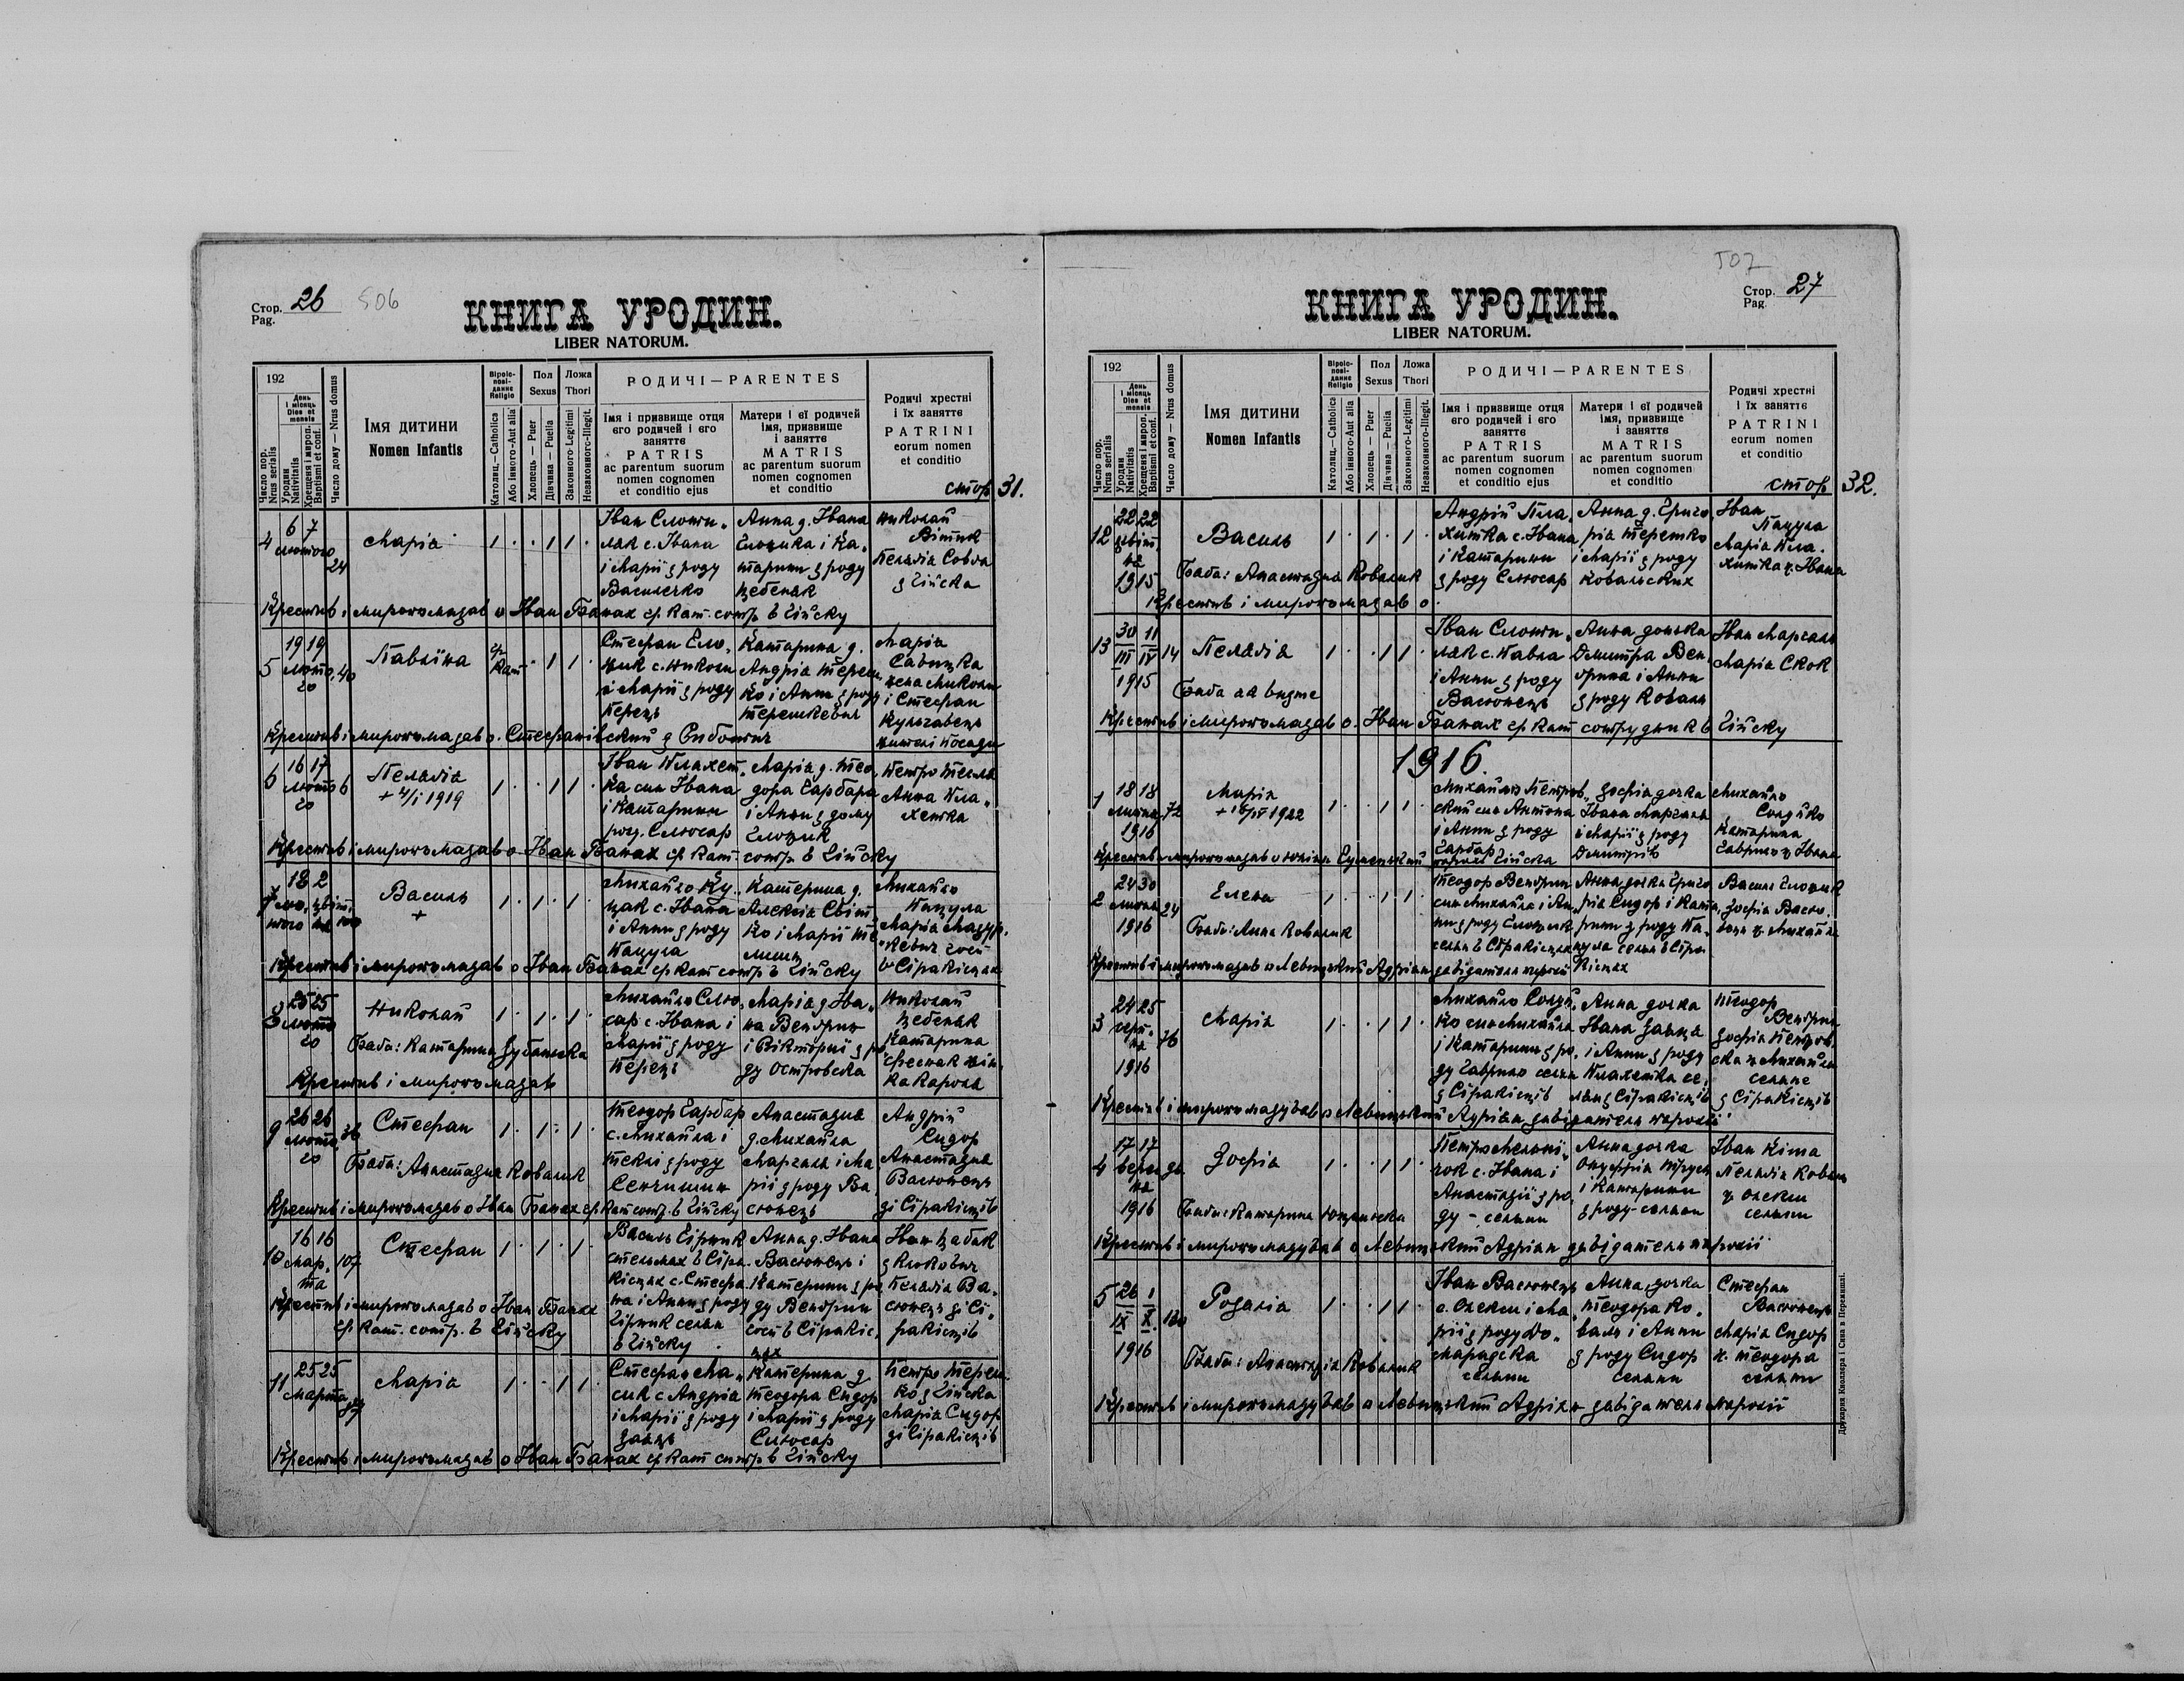 Стор. 26 506
Pag.
КНИГА УРОДИН.
LIBER NATORUM.
192
Число пор.
Nrus serialis
День
і місяць
Dies et
mensis
Уродин
Nativitatis
Хрещеня і миров.
Baptismi et conf.
Число дому — Nrus domus
Імя дитини
Nomen Infantis
Віроіспо-
відане
Religio
Католиц.—Catholica
Або інного-Aut alia
Пол
Sexus
Хлопець — Puer
Дівчина — Puella
Ложа
Thori
Законного-Legitimi
Незаконного-Illegit.
РОДИЧІ — PARENTES
Імя і призвище отця
єго родичей і єго
занятє
PATRIS
ac parentum suorum
nomen cognomen
et conditio ejus
Матери і єї родичей
імя, призвище
і занятє
MATRIS
ac parentum suorum
nomen cognomen
et conditio
Родичі хрестні
і їх занятє
PATRINI
eorum nomen
et conditio
стор 31.
4 6 7 лютого 24 Марія 1 · · 1 1 ·
Іван
лак с. Івана
і Марії з роду
Василечко
Анна д. Івана
і Ка-
тарини з роду
Цебеняк
Николай
Вітик
Пелагія
Крестив і миропомазав о Іван Банах гр. кат. сотр. в Лійску
5 19 19 лютого 40 Павлїна гр кат · 1 1 ·
Стефан
с. Николи
і Марії з роду
Перець
Катарина д.
Андрія Тереш
ко і Анни з роду
Терешкевич
Марія
Савицка
жена Миколи
і Стефан
Крестив і миропомазав о. Стефанівский з Рибо
6 16 17 лютого 6 Пелагія 1 · · 1 1 ·
+ 4/I 1919
Іван Плахет-
ка син Івана
і Катарини
род. Слюсар
Марія д. Тео-
дора Гарбара
і Анни з дому
Петро
Анна Пла-
хетка
Крестив і миропомазав о Іван Банах гр. кат. сотр. в Лійску
7 18 2 100 Василь 1 · 1 · 1 ·
+
Михайло Ку-
цак с. Івана
і Анни з роду
Пацула
Катерина д.
Алексія Світ-
ко і Марії
Михайло
Пацула
Марія
в Сїракісцах
Крестив і миропомазав о Іван Банах гр кат сотр в Лійску
8 25 25 лютого Николай 1 · 1 · 1 ·
Баба: Катарина
Михайло Слю-
сар с. Івана і
Марії з роду
Перець
Марія д Іва-
на Вендрин
і Вікторії з ро
ду Островска
Николай
Цебеняк
Катарина
Крестив і миропомазав
9 26 26 лютого 36 Стефан 1 · 1 · 1 ·
Баба: Анастазия Ковалик
Теодор Гарбар
с. Михайла і
Теклї з роду
Сенчишин
Анастазия
д. Михайла
Марчак і Ма
рії з роду Ва
сюнець
Андрій
Сидор
Анастазия
Васюнець
зі Сїракісців
Крестив і миропомазав о Іван Банах гр. кат сотр. в Лійску
10 16 16 марта 107 Стефан 1 · 1 · 1 ·
Василь
стельмах в Сїра-
кісцах с. Стефа-
на і Анни з роду
в Лійску
Анна д. Івана
Васюнець і
Катерини з ро
ду Вендрин
в Сїракіс-
цах
Іван
Пелагія Ва-
сюнець зі Сї-
ракісців
Крестив і миропомазав о Іван Банах
гр. кат. сотр. в Лійску
11 25 25 марта Марія 1 · · 1 1 ·
Стефан Ма-
с. Андрія
і Марії з роду
Заяць
Катерина д
Теодора Сидор
і Марії з роду
Слюсар
Петро Тереш
ко з Лійска
Марія Сидор
зі Сїракісців
Крестив і миропомазав о Іван Банах гр кат сотр в Лійску
507
Стор. 27
Pag.
КНИГА УРОДИН.
LIBER NATORUM.
192
Число пор.
Nrus serialis
День
і місяць
Dies et
mensis
Уродин
Nativitatis
Хрещеня і миров.
Baptismi et conf.
Число дому — Nrus domus
Імя дитини
Nomen Infantis
Віроіспо-
відане
Religio
Католиц.—Catholica
Або інного-Aut alia
Пол
Sexus
Хлопець — Puer
Дівчина — Puella
Ложа
Thori
Законного-Legitimi
Незаконного-Illegit.
РОДИЧІ — PARENTES
Імя і призвище отця
єго родичей і єго
занятє
PATRIS
ac parentum suorum
nomen cognomen
et conditio ejus
Матери і єї родичей
імя, призвище
і занятє
MATRIS
ac parentum suorum
nomen cognomen
et conditio
Родичі хрестні
і їх занятє
PATRINI
eorum nomen
et conditio
стор 32.
12 22 22 цвітня 1915 Василь 1 · 1 · 1 ·
Баба: Анастазия Ковалик
Андрій Пла-
хитка с. Івана
і Катарини
з роду Слюсар
Анна д. Григо-
рія Терешко
і Марії з роду
Ковальских
Іван
Пацула
Марія Пла-
хитка ж. Івана
Крестив і миропомазав о.
13 30 11 III IV 1915 14 Пелагія 1 · · 1 1 ·
Баба як висше
Іван
лак с. Павла
і Анни з роду
Васюнець
Анна донька
Дмитра Вен-
дрина і Анни
з роду Коваль
Іван Марчак
Марія Скок
Крестив і миропомазав о. Іван Банах гр кат сотрудник в Лійску
1916.
1 18 18 1916 72 Марія 1 · · 1 1 ·
1922
Михайло Петров-
ский син Антона
і Анни з роду
Гарбар
Зофія дочка
Івана Марчака
і Марії з роду
Дмитрів
Михайло
Солдико
Катарина
Гаврило ж Івана
2 24 30 1916 24 Елена 1 · · 1 1 ·
Баба: Анна Ковалик
Теодор Вендрин
син Михайла і Ан-
ни з роду
Анна дочка Григо-
рія Сидор і Ката-
рини з роду Па-
цула
Василь
Зофія Васю-
нець ж. Михайла
Крестив і миропомазав о Левицький Адріан завідатель парохії
3 24 25 1916 76 Марія 1 · · 1 1 ·
Михайло Солди-
ко син Михайла
і Катарини з ро-
ду Гаврило
з Сїракісців
Анна дочка
Івана Заяца
і Анни з роду
Плахетка
з Сїракісців
Теодор
Вендрин
Зофія Петров-
ска ж Михайла
селяне
з Сїракісців
Крестив і миропомазував о Левицький Адріан завідатель парохії
4 17 17 1916 Зофія 1 · · 1 1 ·
Баба: Катарина
Петро
с. Івана і
Анастазії з ро-
ду – селяни
Анна дочка
Онуфрія
і Катарини
з роду – селяни
Іван Кіта
Пелагія Коваль
ж Олекси
селяни
Крестив і миропомазував о Левицький Адріан завідатель парохії
5 26 1 IX X 1916 Розалія 1 · · 1 1 ·
Баба: Анастазия Ковалик
Іван Васюнець
с. Олекси і Ма-
рії з роду До-
марадска
селяни
Анна дочка
Теодора Ко-
валь і Анни
з роду Сидор
селяни
Стефан
Васюнець
Марія Сидор
ж. Теодора
селяни
Крестив і миропомазував о Левицький Адріан завідатель парохії
Друкарня Кнолєра і Сина в Перемишлі.